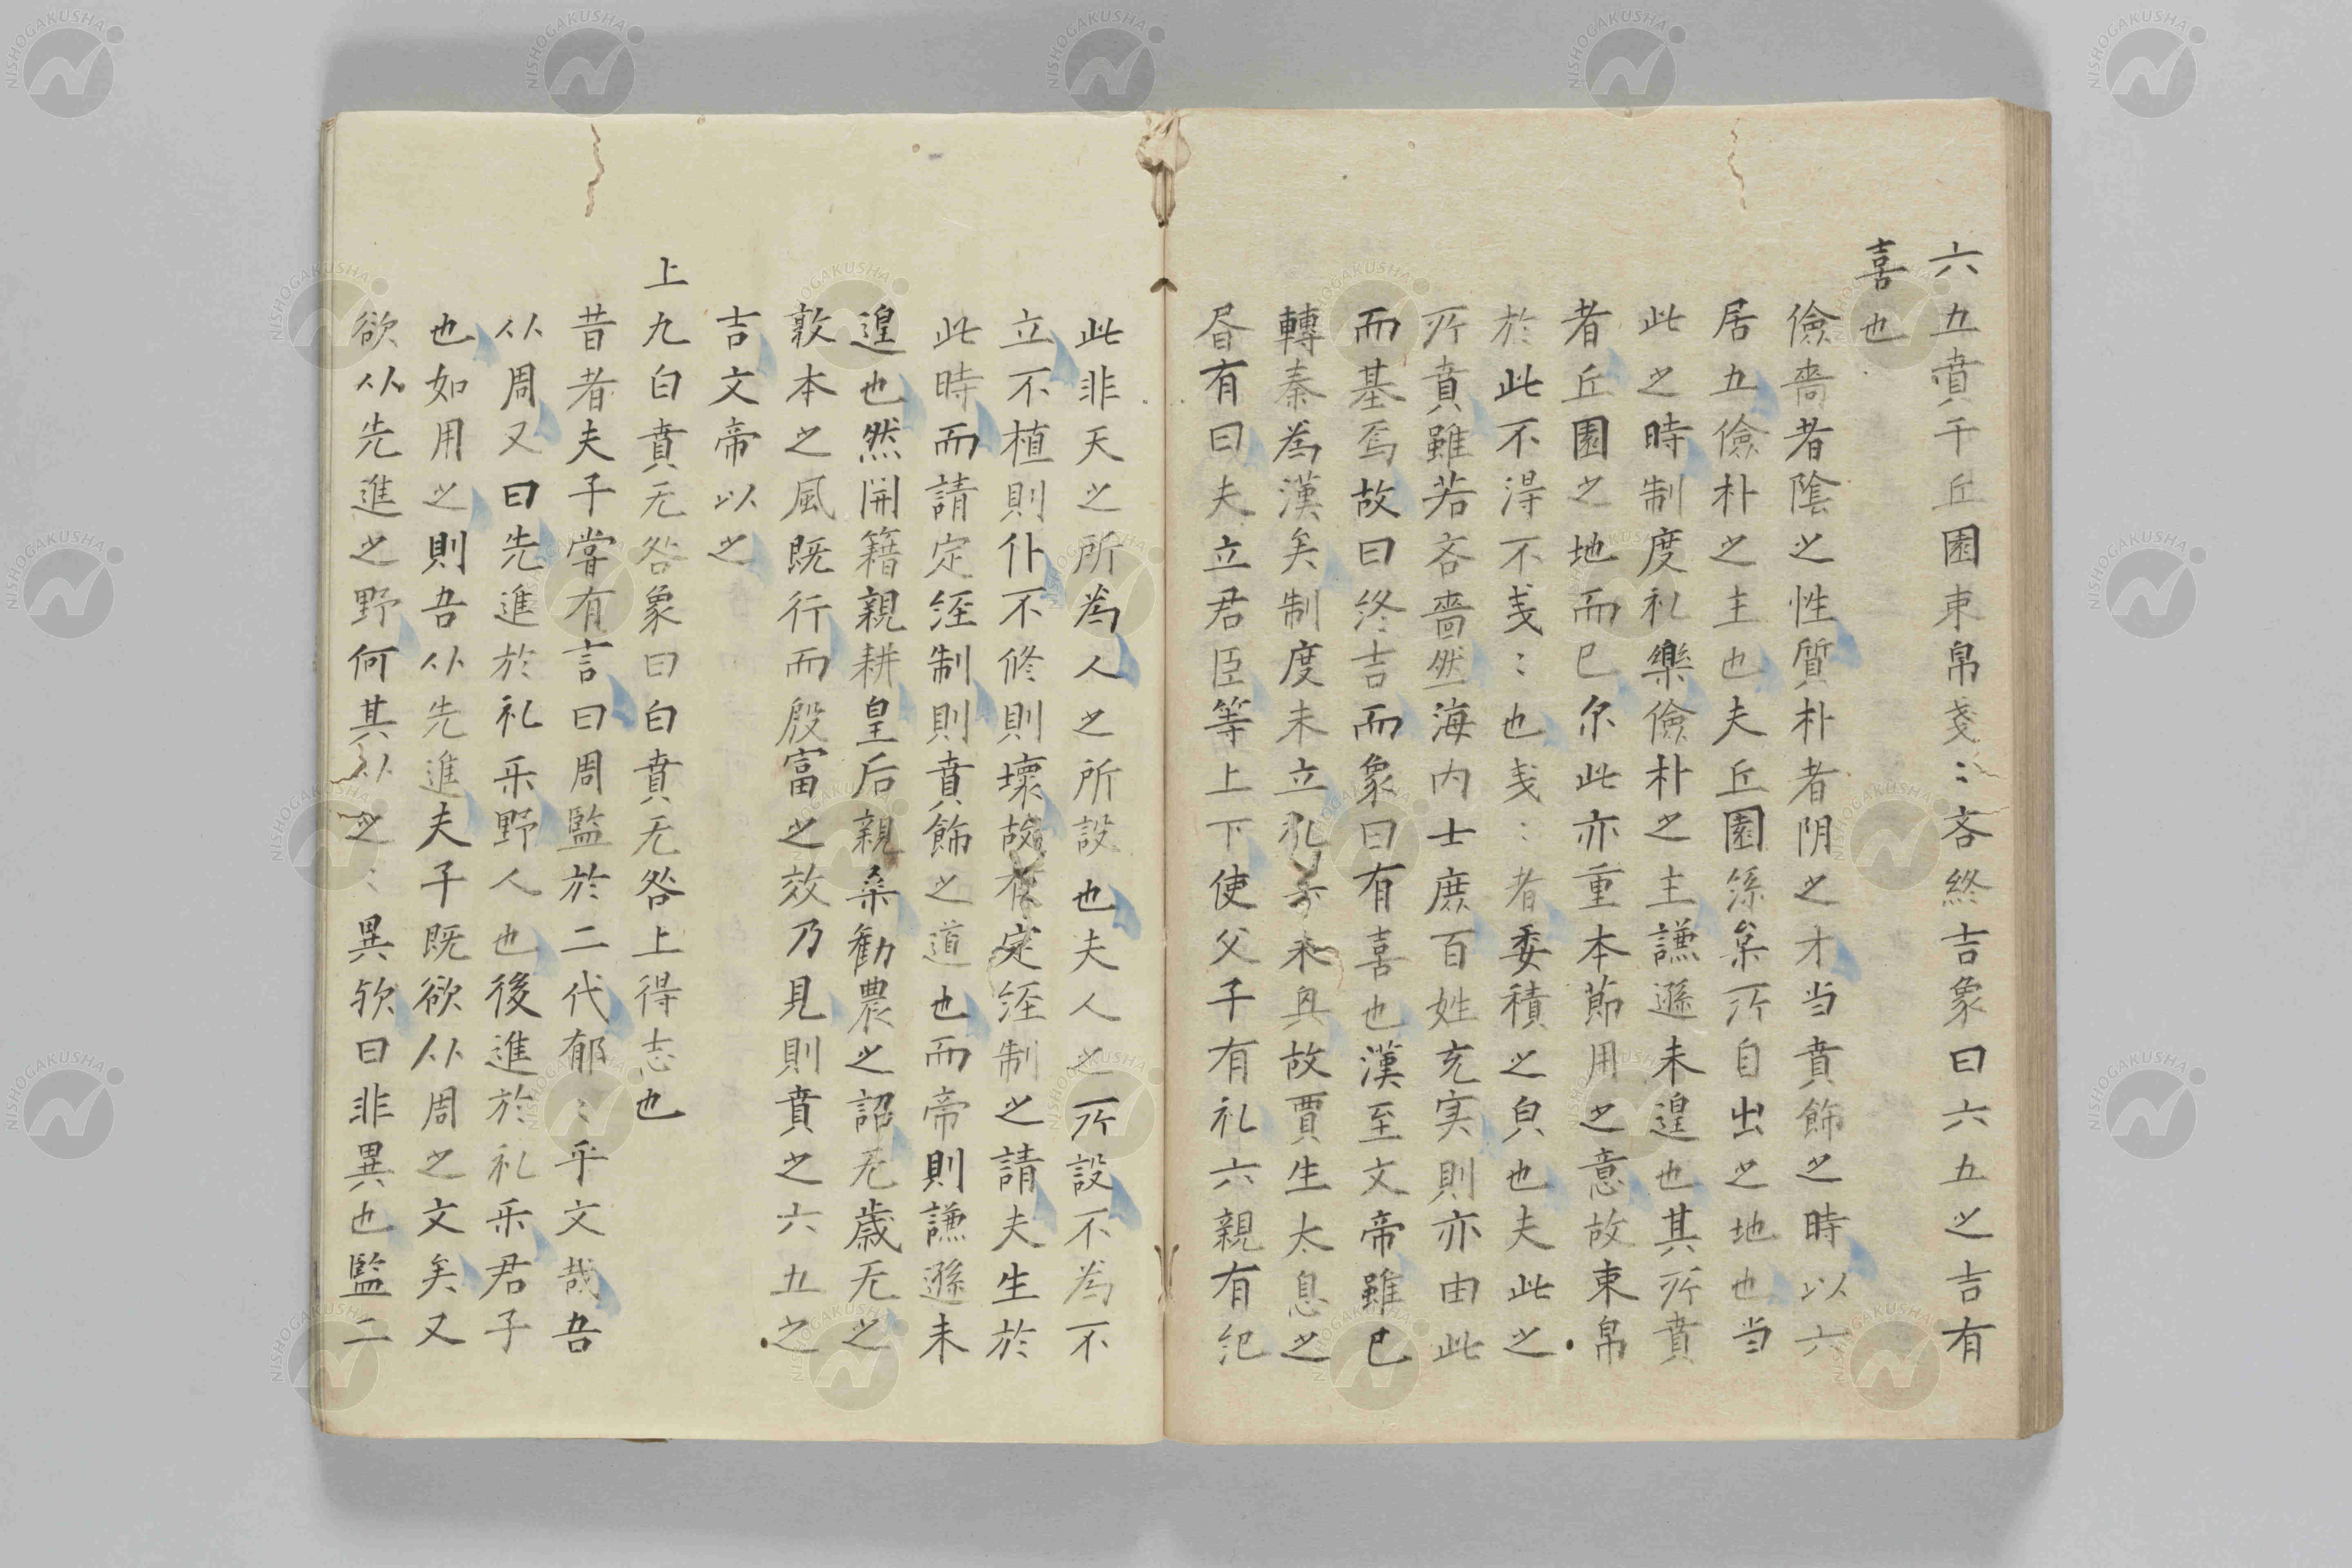 六五賁于丘園束帛戔〻吝終吉象曰六五之吉有
喜也
儉嗇者陰之性質朴者阴之才当賁飾之時以六
居五儉朴之主也夫丘園係桒所自出之地也当
此之時制度礼樂儉朴之主謙遜未遑也其所賁
者丘園之地而已尓此亦重本節用之意故束帛
於此不淂不戔〻也戔〻者委積之皃也夫此之
所賁雖若吝嗇然海内士庶百姓充実則亦由此
而基焉故曰終吉而象曰有喜也漢至文帝雖已
轉秦為漢矣制度未立礼未具故賈生太息之
昏有曰夫立君臣等上下使父子有礼六親有紀
此非天之所為人之所設也夫人之所設不為不
立不植則仆不修則壞故定経制之請夫生於
此時而請定経制則賁飾之道也而帝則謙遜未
遑也然開籍親耕皇后親桒勧農之詔无歳无之
敦本之風既行而殷富之效乃見則賁之六五之
吉文帝以之
上九白賁无咎象曰白賁无咎上得志也
昔者夫子甞有言曰周監於二代郁〻乎文哉吾
从周又曰先進於礼乐野人也後進於礼乐君子
也如用之則吾从先進夫子既欲从周之文矣又
欲从先進之野何其从之〻異欤曰非異也監二